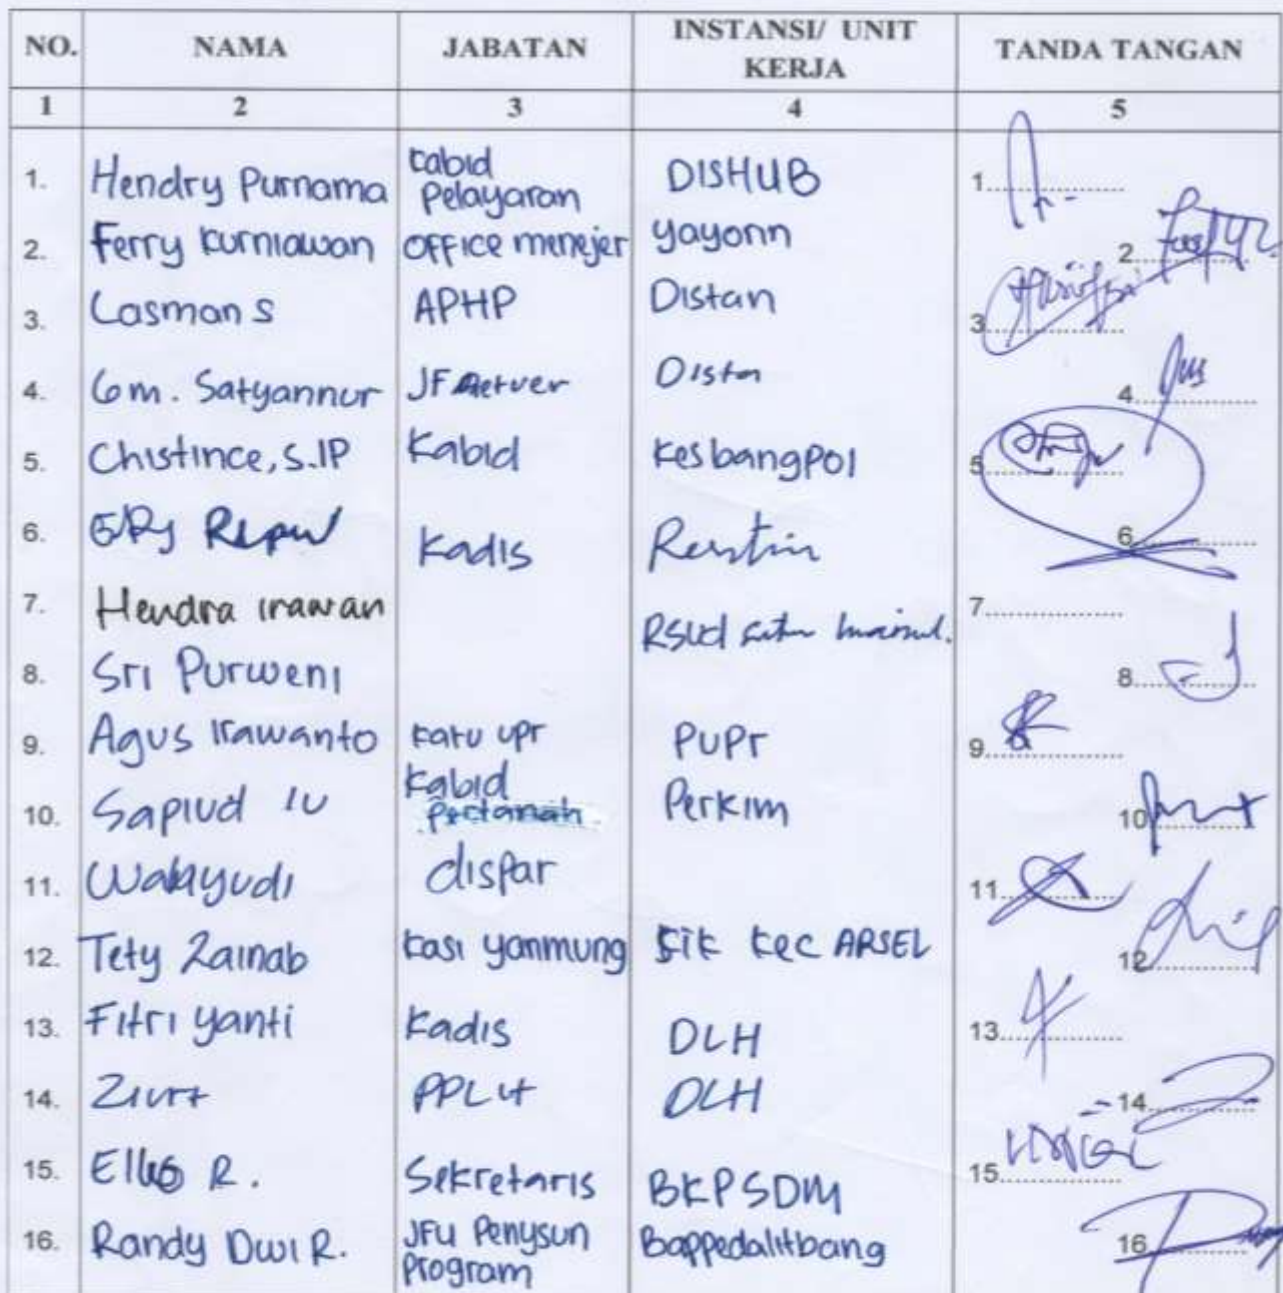 NO. NAMA JABATAN INSTANSI/ UNIT KERJA TANDA TANGAN
1 2 3 4 5
1. Hendry Purnama Kabid Pelayaran DISHUB 1
2. Ferry Kurniawan OFFICE menejer Yayonn 2
3. Losman S APHP Distan 3
4. Gm. Satyannur JF Distan 4
5. Chistince, S.IP Kabid Kesbangpol 5
6. Kadis 6
7. Hendra Irawan 7
RSUD
8. Sri Purweni 8
9. Agus Irawanto upr PUPr 9
10. Sapiud Kabid Pertanah Perkim 10
11. dispar 11
12. Tety Zainab Kasi Yanmung Kec ARSEL 12
13. Fitri Yanti Kadis DLH 13
14. DLH 14
15. R. Sekretaris BKPSDM 15
16. Randy Dwi R. JFU Penysun Program Bappedalitbang 16